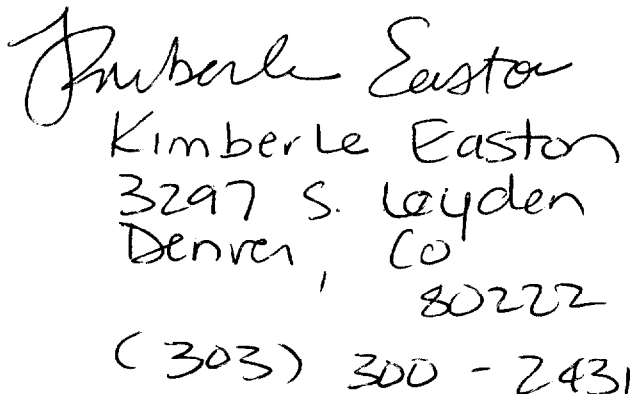 Kimberle Easton
Kimberle Easton
3297 S. Leyden
Denver, CO
80222
(303) 300-2431